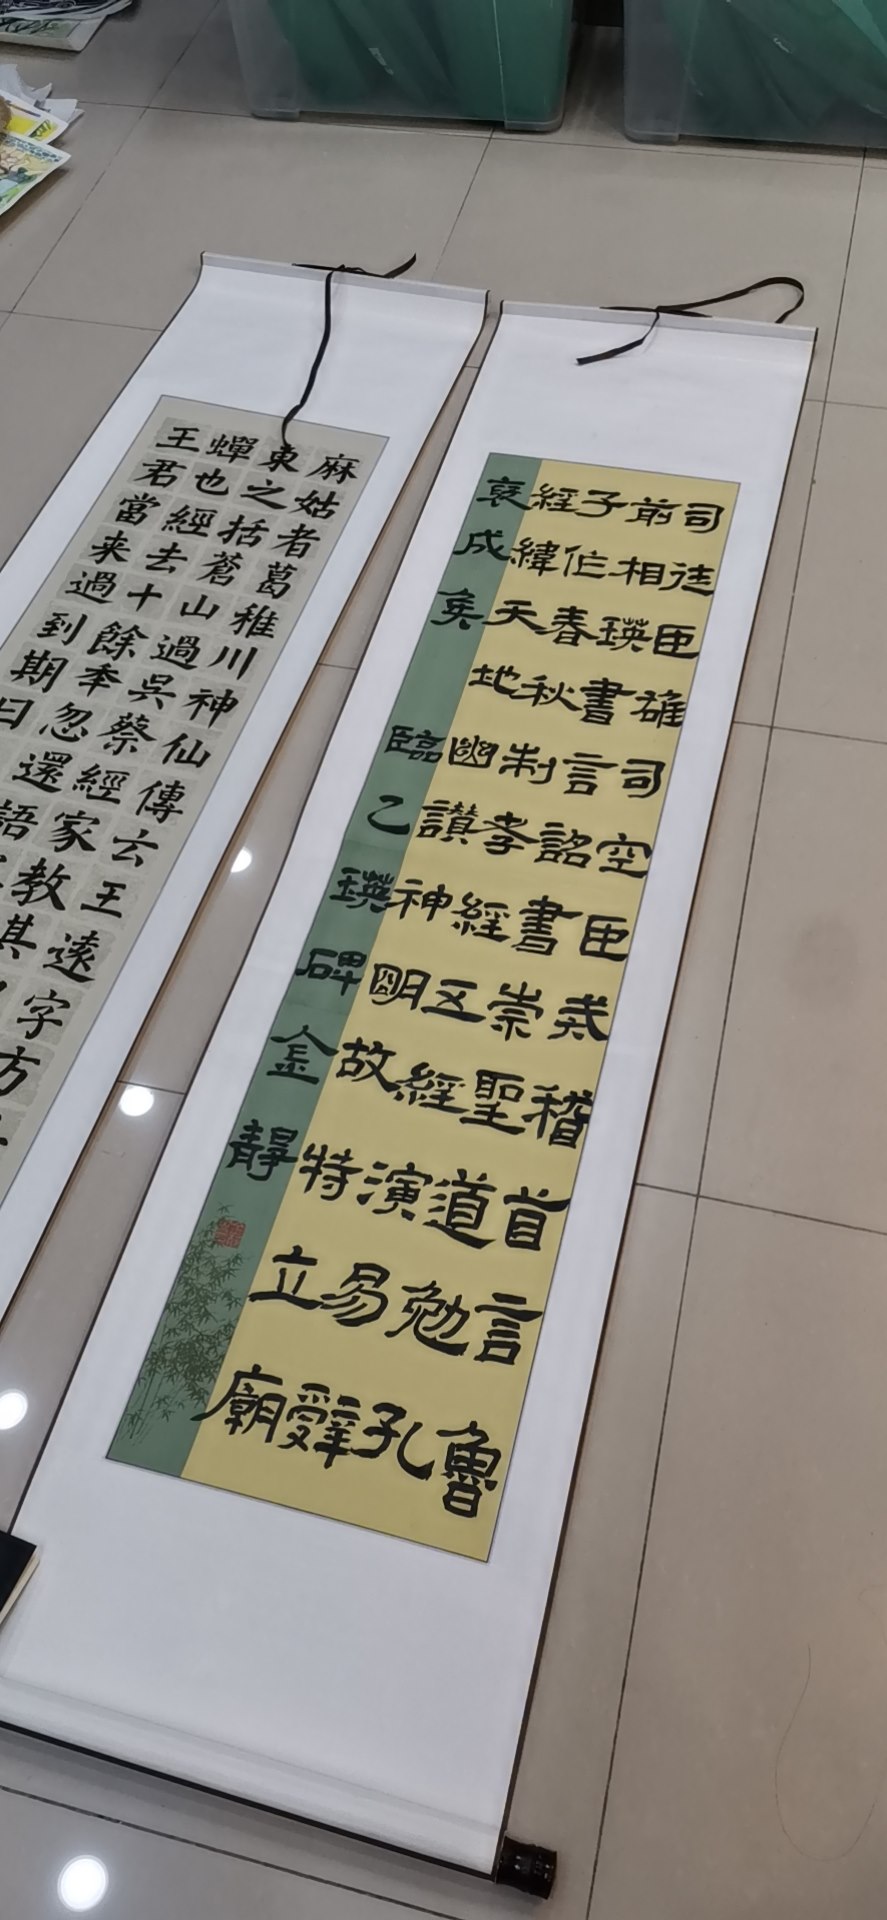 司徒臣雄司空臣戒稽首言魯
前相瑛書言詔書崇聖道勉孔
子作春秋制孝經五經演易辤
經緯天地幽讚神明故特立廟
褒成侯 臨乙瑛碑金靜
麻姑者葛稚川神仙傳云王遠字方
東之括蒼山過吳蔡經家教其
蟬也經去十餘秊忽還語
王君當来過到期曰